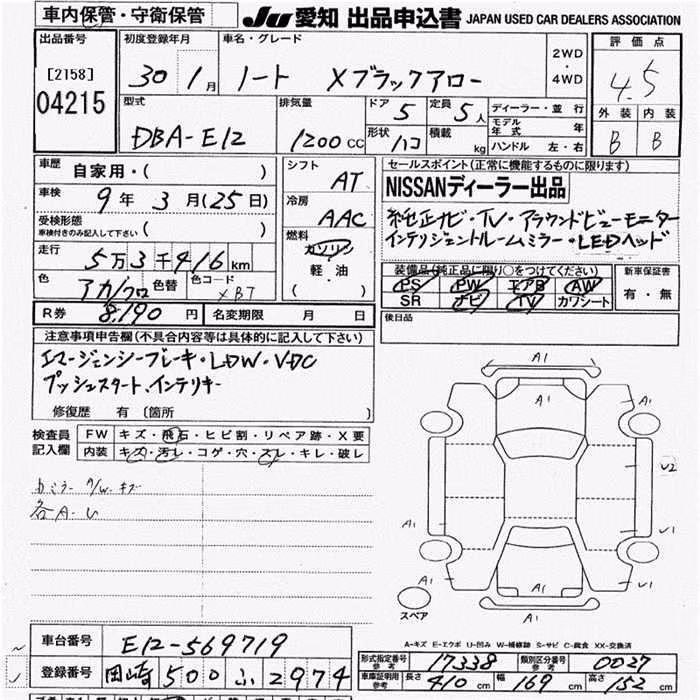 車内保管・守衛保管
JU 愛知 出品申込書 JAPAN USED CAR DEALERS ASSOCIATION
出品番号 初度登録年月 車名・グレード 評価点
[2158] 30 1月 ノート Xブラックアロー 2WD・4WD 4.5
04215 型式 排気量 ドア 5 定員 5人 ディーラー・並行 外装 内装
DBA-E12 1200cc 形状 ハコ 積載 kg モデル年式 年 B B
ハンドル 左・右
車歴 自家用・( ) シフト AT セールスポイント(正常に機能するものに限ります)
車検 9年 3月(25日) 冷房 AAC NISSANディーラー出品
受検形態 車検付きのみ記入して下さい ( ) 燃料 ガソリン 軽油 ( ) 純正ナビ・TV・アラウンドビューモニター
インテリジェントルームミラー・LEDヘッド
走行 5万3千416km
装備品(純正品に限り○をつけてください) 新車保証書
色 アカ/クロ 色替 色コード XBT PS PW エアB AW 有・無
SR ナビ TV カワシート
R券 8,190円 名変期限 月 日 後日品
注意事項申告欄(不具合内容等は具体的に記入して下さい)
エマージェンシーブレーキ・LDW・VDC
プッシュスタート、インテリキー
修復歴 有 〔箇所 〕
検査員記入欄 FW キズ・飛石・ヒビ割・リペア跡・X要
内装 キズ・汚レ・コゲ・穴・スレ・キレ・破レ
各A・U
A1
A1
A1
A1
U2
A1
A1
U1
A1
A1
U1
A1
スペア
A-キズ E-エクボ U-凹み W-補修跡 S-サビ C-腐食 XX-交換済
車台番号 E12-569719
登録番号 岡崎 500 ふ 2974
型式指定番号 参考 17338 類別区分番号 参考 0027
車庫証明用 参考 長さ 410cm 幅 169cm 高さ 152cm